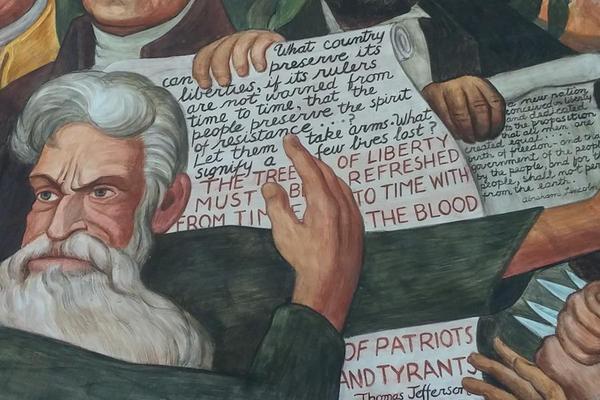 What country
can preserve its
liberties, if its rulers
are not warned from
time to time, that the
people preserve the spirit
of resistance...?
Let them take arms. What
signify a few lives lost?
THE TREE OF LIBERTY
MUST BE REFRESHED
FROM TIME TO TIME WITH
THE BLOOD
OF PATRIOTS
AND TYRANTS
Thomas Jefferson
a new nation
conceived in liberty
and dedicated
to the proposition
that all men
created equal
birth of freedom - and
government of the people
by the people, and for
people, shall not
from the earth.
Abraham Lincoln